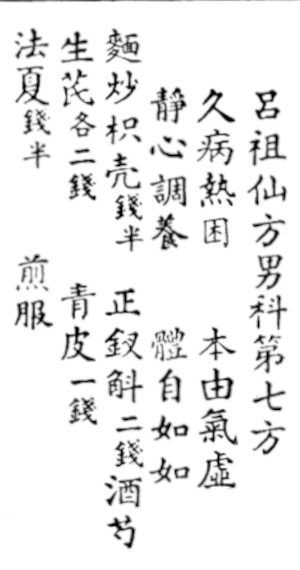 呂祖仙方男科第七方
久病熱困　本由氣虛
靜心調養　體自如如
麵炒枳壳錢半　正釵斛二錢酒芍
生芪各二錢　青皮一錢
法夏錢半　煎服